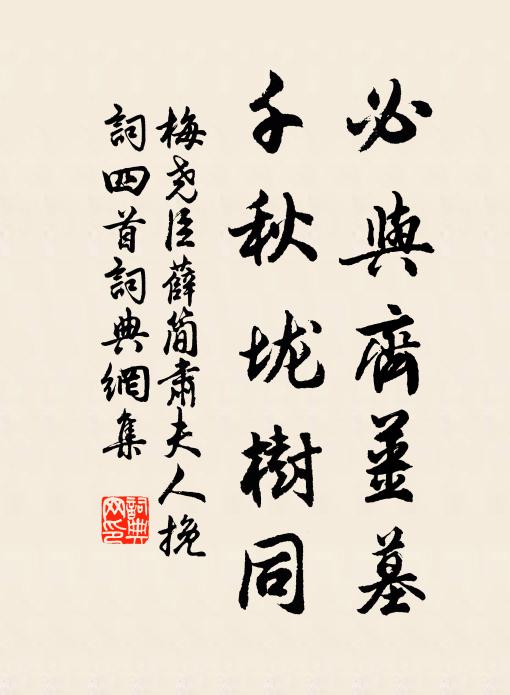 必與齊姜墓
千秋垅樹同
梅尧臣薛簡肅夫人挽
詞四首詞典網集
詞典
网印